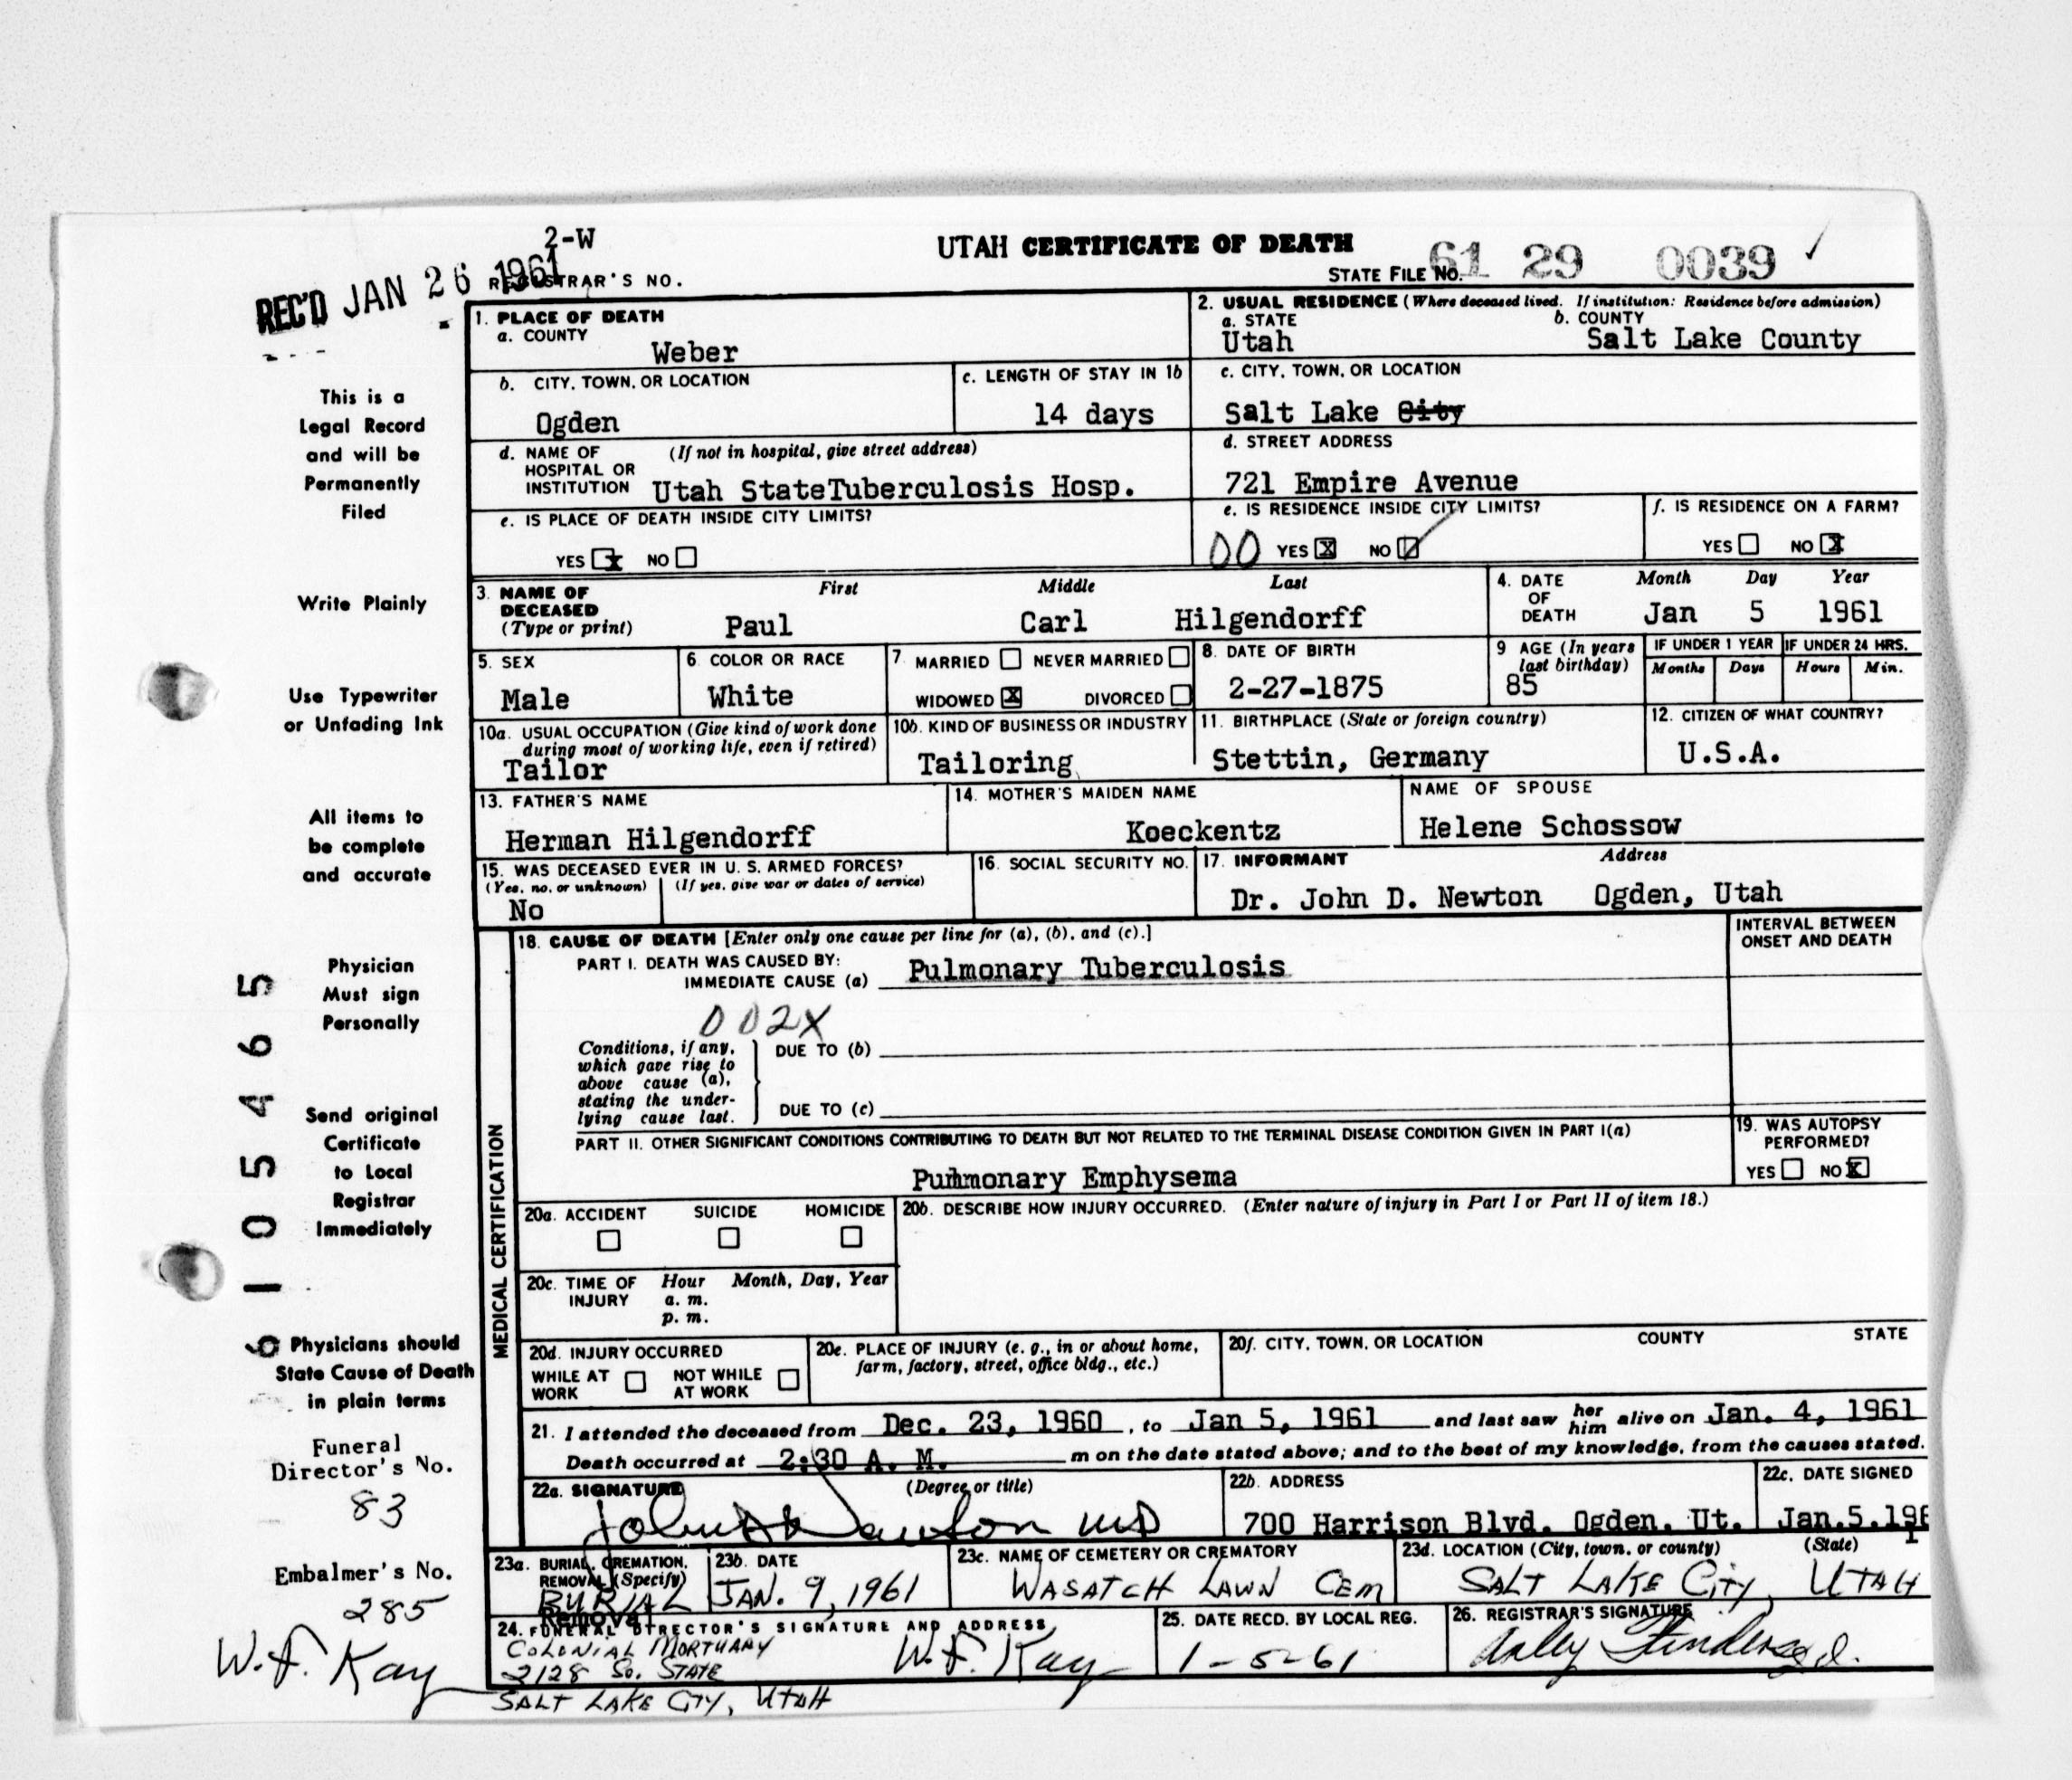 2-W
UTAH CERTIFICATE OF DEATH
REC'D JAN 26 1961 REGISTRAR'S NO.
STATE FILE NO. 61 29 0039
1. PLACE OF DEATH
a. COUNTY
Weber
2. USUAL RESIDENCE (Where deceased lived. If institution: Residence before admission)
a. STATE b. COUNTY
Utah Salt Lake County
b. CITY, TOWN, OR LOCATION
Ogden
c. LENGTH OF STAY IN 1b
14 days
c. CITY, TOWN, OR LOCATION
Salt Lake City
d. NAME OF (If not in hospital, give street address)
HOSPITAL OR
INSTITUTION Utah StateTuberculosis Hosp.
d. STREET ADDRESS
721 Empire Avenue
e. IS PLACE OF DEATH INSIDE CITY LIMITS?
YES x NO
e. IS RESIDENCE INSIDE CITY LIMITS?
00 YES X NO
f. IS RESIDENCE ON A FARM?
YES NO X
3. NAME OF DECEASED (Type or print)
First Middle Last
Paul Carl Hilgendorff
4. DATE OF DEATH
Month Day Year
Jan 5 1961
5. SEX
Male
6. COLOR OR RACE
White
7. MARRIED NEVER MARRIED
WIDOWED X DIVORCED
8. DATE OF BIRTH
2-27-1875
9 AGE (In years last birthday)
85
IF UNDER 1 YEAR IF UNDER 24 HRS.
Months Days Hours Min.
10a. USUAL OCCUPATION (Give kind of work done during most of working life, even if retired)
Tailor
10b. KIND OF BUSINESS OR INDUSTRY
Tailoring
11. BIRTHPLACE (State or foreign country)
Stettin, Germany
12. CITIZEN OF WHAT COUNTRY?
U.S.A.
13. FATHER'S NAME
Herman Hilgendorff
14. MOTHER'S MAIDEN NAME
Koeckentz
NAME OF SPOUSE
Helene Schossow
15. WAS DECEASED EVER IN U. S. ARMED FORCES?
(Yes, no, or unknown) (If yes, give war or dates of service)
No
16. SOCIAL SECURITY NO.
17. INFORMANT Address
Dr. John D. Newton Ogden, Utah
MEDICAL CERTIFICATION
18. CAUSE OF DEATH [Enter only one cause per line for (a), (b), and (c).]
INTERVAL BETWEEN
ONSET AND DEATH
PART I. DEATH WAS CAUSED BY:
IMMEDIATE CAUSE (a) Pulmonary Tuberculosis
002X
Conditions, if any,
which gave rise to
above cause (a),
stating the under-
lying cause last.
DUE TO (b)
DUE TO (c)
PART II. OTHER SIGNIFICANT CONDITIONS CONTRIBUTING TO DEATH BUT NOT RELATED TO THE TERMINAL DISEASE CONDITION GIVEN IN PART I(a)
Pulmonary Emphysema
19. WAS AUTOPSY
PERFORMED?
YES NO X
20a. ACCIDENT SUICIDE HOMICIDE
20b. DESCRIBE HOW INJURY OCCURRED. (Enter nature of injury in Part I or Part II of item 18.)
20c. TIME OF INJURY
Hour Month, Day, Year
a. m.
p. m.
20d. INJURY OCCURRED
WHILE AT WORK NOT WHILE AT WORK
20e. PLACE OF INJURY (e. g., in or about home,
farm, factory, street, office bldg., etc.)
20f. CITY, TOWN, OR LOCATION COUNTY STATE
21. I attended the deceased from Dec. 23, 1960, to Jan 5, 1961 and last saw her him alive on Jan. 4, 1961
Death occurred at 2:30 A. M. m on the date stated above; and to the best of my knowledge, from the causes stated.
22a. SIGNATURE (Degree or title)
John D Newton MD
22b. ADDRESS
700 Harrison Blvd. Ogden. Ut.
22c. DATE SIGNED
Jan.5.1961
23a. BURIAL, CREMATION,
REMOVAL (Specify)
BURIAL
Removal
23b. DATE
JAN. 9, 1961
23c. NAME OF CEMETERY OR CREMATORY
WASATCH LAWN CEM
23d. LOCATION (City, town, or county) (State)
SALT LAKE CITY, UTAH
24. FUNERAL DIRECTOR'S SIGNATURE AND ADDRESS
COLONIAL MORTUARY W. F. Kay
2128 So. STATE
SALT LAKE CITY, UTAH
25. DATE RECD. BY LOCAL REG.
1-5-61
26. REGISTRAR'S SIGNATURE
This is a
Legal Record
and will be
Permanently
Filed
Write Plainly
Use Typewriter
or Unfading Ink
All items to
be complete
and accurate
Physician
Must sign
Personally
Send original
Certificate
to Local
Registrar
Immediately
Physicians should
State Cause of Death
in plain terms
6105465
Funeral
Director's No.
83
Embalmer's No.
285
W. F. Kay